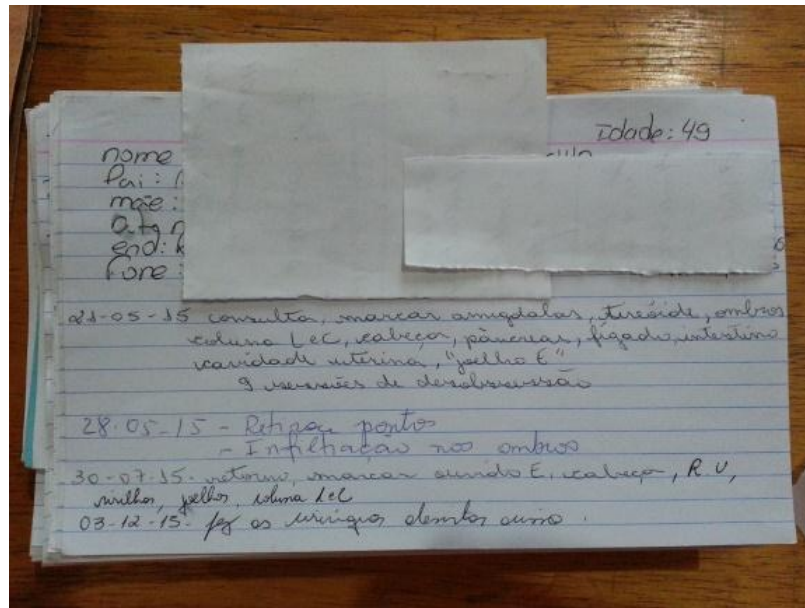 Idade: 49
nome
Pai:
mãe:
end:
Fone:
21-05-15 consulta, marcar amigdalas, tireóide, ombros
coluna L e C, cabeça, pâncreas, fígado, intestino
cavidade uterina, "joelho E"
9 sessões de desobsessão
28-05-15 - Retirou pontos
- Infiltração nos ombros
30-07-15. retorno, marcar ouvido E, cabeça, R. U,
joelhos, coluna L e C
03-12-15- fez as cirurgias